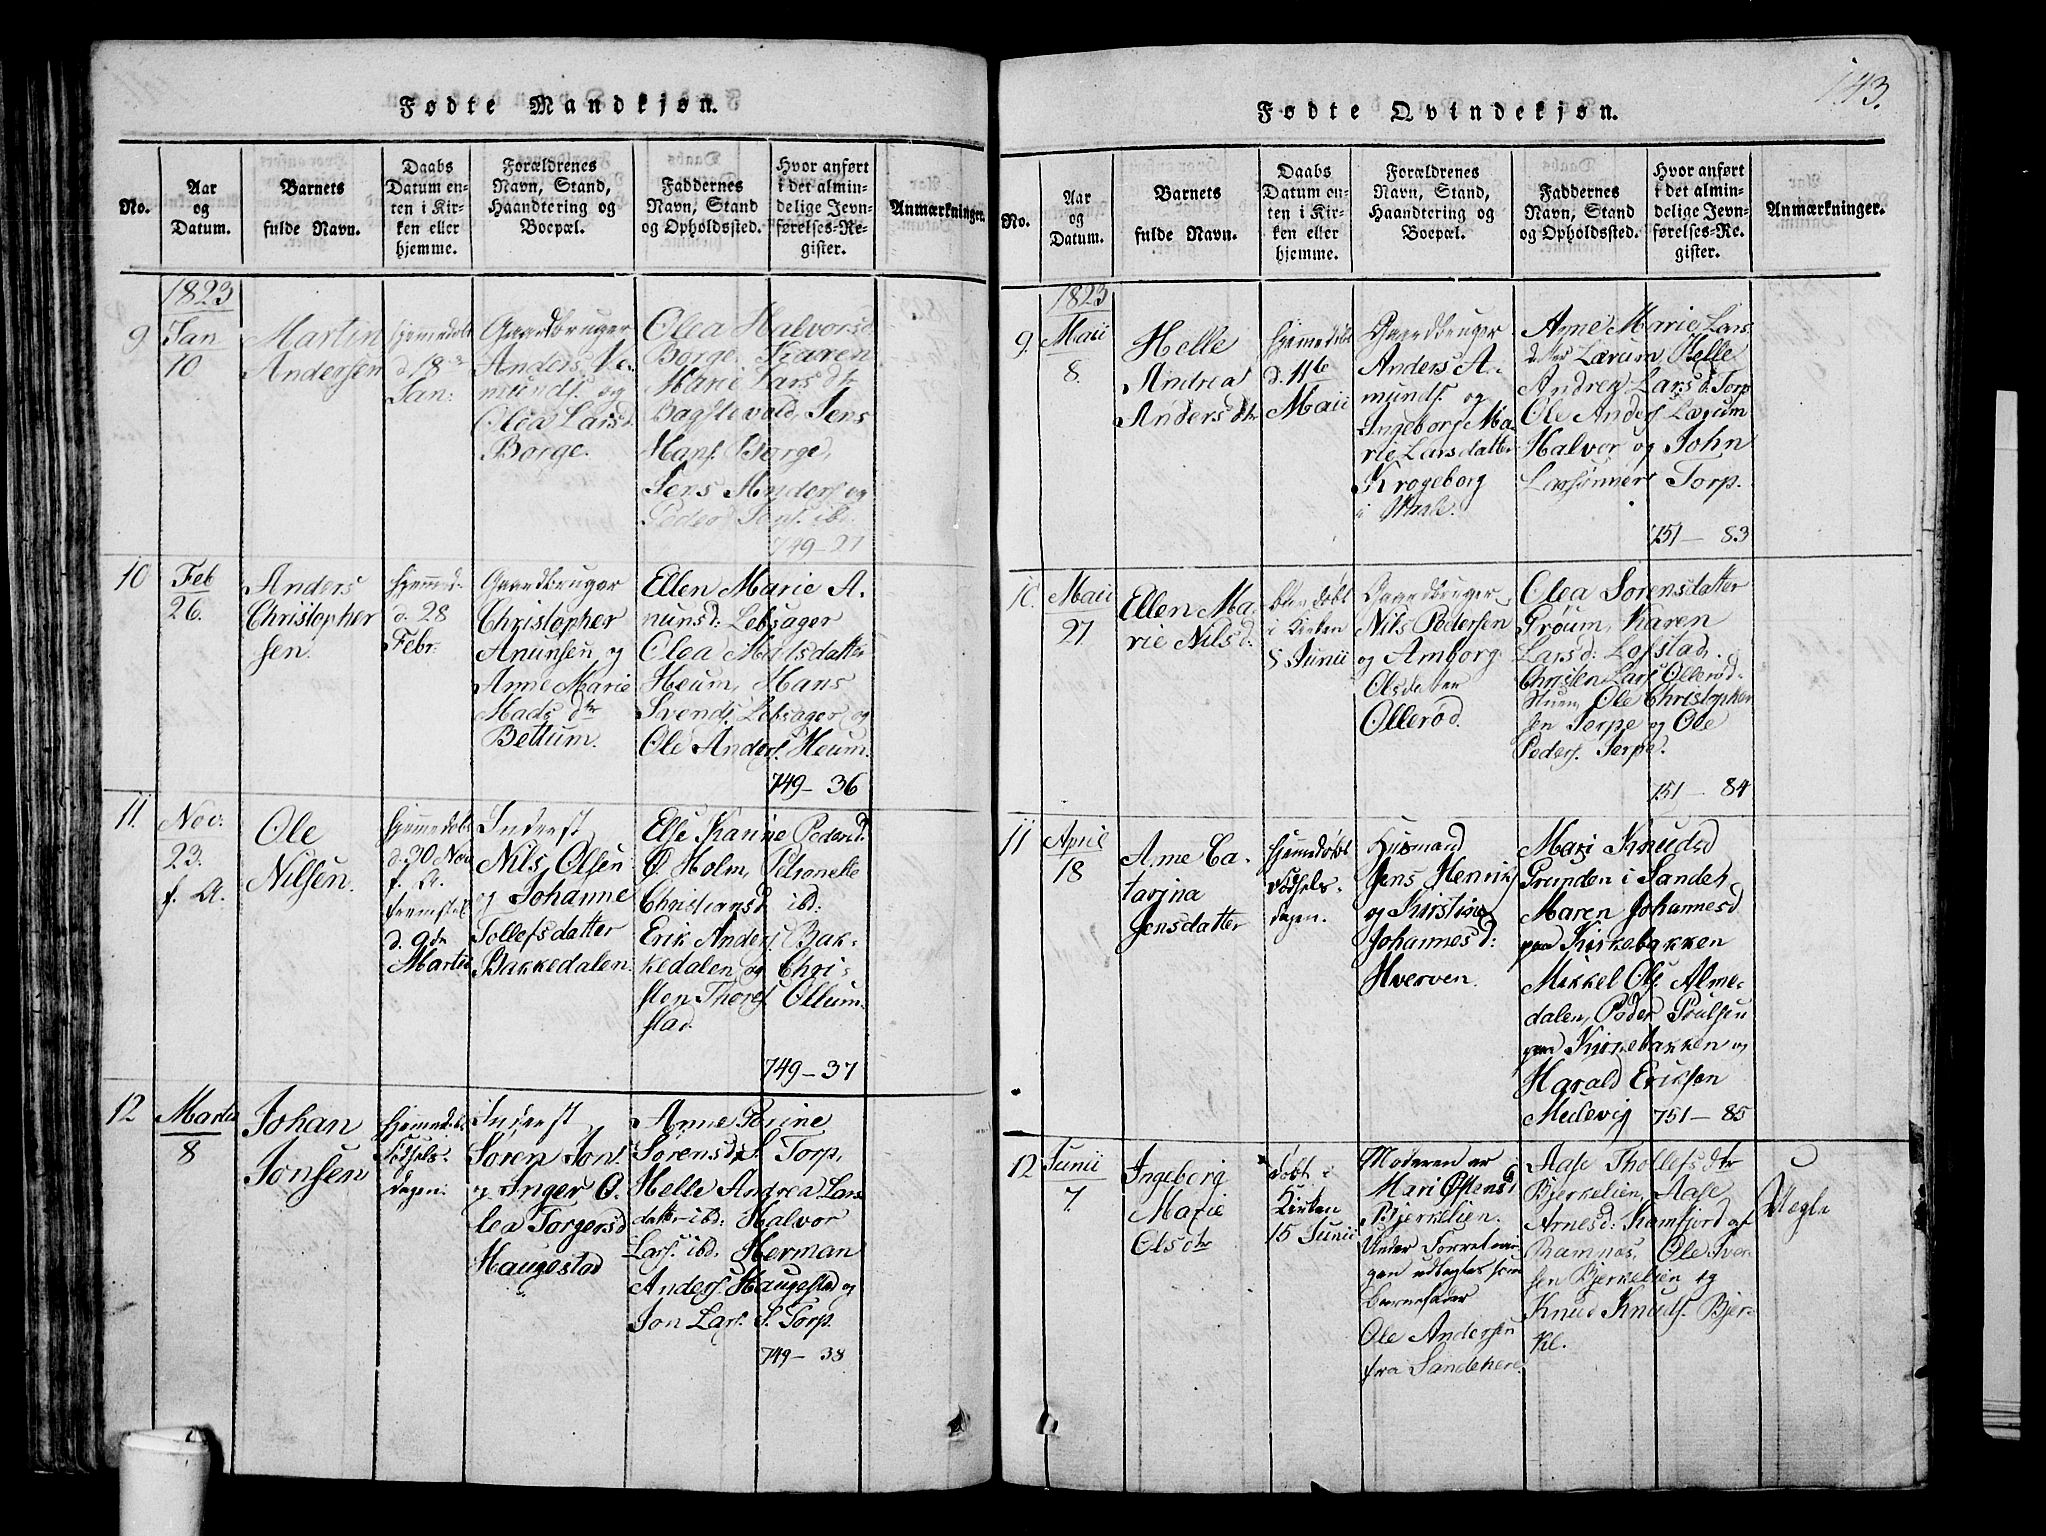 Fødte Mandkjøn.
No.
Aar
og
Datum.
Barnets
fulde Navn.
Daabs
Datum en-
ten i Kir-
ken eller
hjemme.
Forældrenes
Navn, Stand,
Haandtering og
Boepæl.
Faddernes
Navn, Stand
og Opholdssted.
Hvor anført
i det almin-
delige Jevn-
førelses-Re-
gister.
Anmærkninger.
1823
9
Jan
10
Martin
Andersen
hjemedøbt
d. 18
Jan:
Gaardbruger
Anders A-
munds. og
Olea Larsd.
Borge.
Olea Halvorsd
Borge, Karen
Marie Lars dtr
Bagstevold, Jens
Hans. Borge,
Jens Anders og
Peder Jons. ibd.
749-27
10
Feb
26.
Anders
Christopher
sen.
hjemmed.
d. 28
Febr.
Gaardbruger
Christopher
Anunsen og
Anne Marie
Mads dtr
Bettum.
Ellen Marie A-
nunsd: Lebsager
Olea Matsdatter
Heum, Hans
Svends. Lebsager og
Ole Anders. Heum.
749-36
11.
Nov:
23.
f. A.
Ole
Nilsen.
hjemedøbt
d. 30 Nov
f. A.
fremstel
d. 9de
Martii
Inderst
Nils Olsen
og Johanne
Tollefsdatter
Bakkedalen.
Else Karine Pedersd.
Ø. Holm, Petronelle
Christiansd ibd:
Erik Anders. Bak-
kedalen og Chri-
sten Thores. Ollum-
stad.
749-37
12
Martii
8
Johan
Jonsen
hjemmedøbt
Fødsels-
dagen.
Inderst
Søren Jons.
og Inger O-
lea Torgersd
Haugestad
Anne Torine
Sørensd. S. Torp,
Helle Andrea Lars
datter ibd: Halvor
Lars. ibd. Herman
Anders. Haugestad og
Jon Lars. S. Torp.
749-38
143.
Fødte Qvindekjøn.
No.
Aar
og
Datum.
Barnets
fulde Navn.
Daabs
Datum en-
ten i Kir-
ken eller
hjemme.
Forældrenes
Navn, Stand,
Haandtering og
Boepæl.
Faddernes
Navn, Stand
og Opholdssted.
Hvor anført
i det almin-
delige Jevn-
førelses-Re-
gister.
Anmærkninger.
1823
9.
Maii
8.
Helle
Andrea
Anders dtr
hjemedøbt
d.
Maii
Gaardbruger
Anders A-
munds. og
Ingeborg Ma-
rie Larsdatter
Krogeborg
i Vaale.
Anne Marie Lars
datter Lærum, Helle
Andrea Larsd. Torp
Ole Anders. Lærum
Halvor og John
Larsønner Torp.
751- 83
10.
Maii
27.
Ellen Ma-
rie Nilsd:
døbt
i Kirken
8 Junii
Gaardbruger
Nils Pedersen
og Amborg
Olsdatter
Ollerød.
Olea Sorensdatter
Grøum, Karen
Larsd: Lofstad.
Christen Lars. Ollerød.
Ole Christopher
sen Serpe og Ole
Peders. Serpe.
751- 84
11
April
18
Anne Ca-
tarina
Jensdatter
hjemedøbt
Fødsels-
dagen.
Husmand
Jens Henrik
og Kirstine
Johannesd:
Hverven.
Mari Knudsd
Grunden i Sandeh.
Maren Johannesd
paa Kirkebakken
Mikkel Ols. Alme-
dalen, Peder Poulsen
paa Kirkebakken og
Harald Eriksen
Medevig 751- 85
12
Junii
7.
Ingeborg
Marie
Olsdtr
døbt i
Kirken
15 Junii
Moderen er
Mari Østensd
Bjerkelien.
Under Forretnin-
gen udlagtes som
Barnefader
Ole Andersen
fra Sandeher.
Aase Thollefsdtr
Bjerkelien, Aase
Arnesd: Kamfjord af
Ramnæs, Ole Iver-
sen Bjerkelien og
Knud Knuds. Bjer-
kel.
Uægte